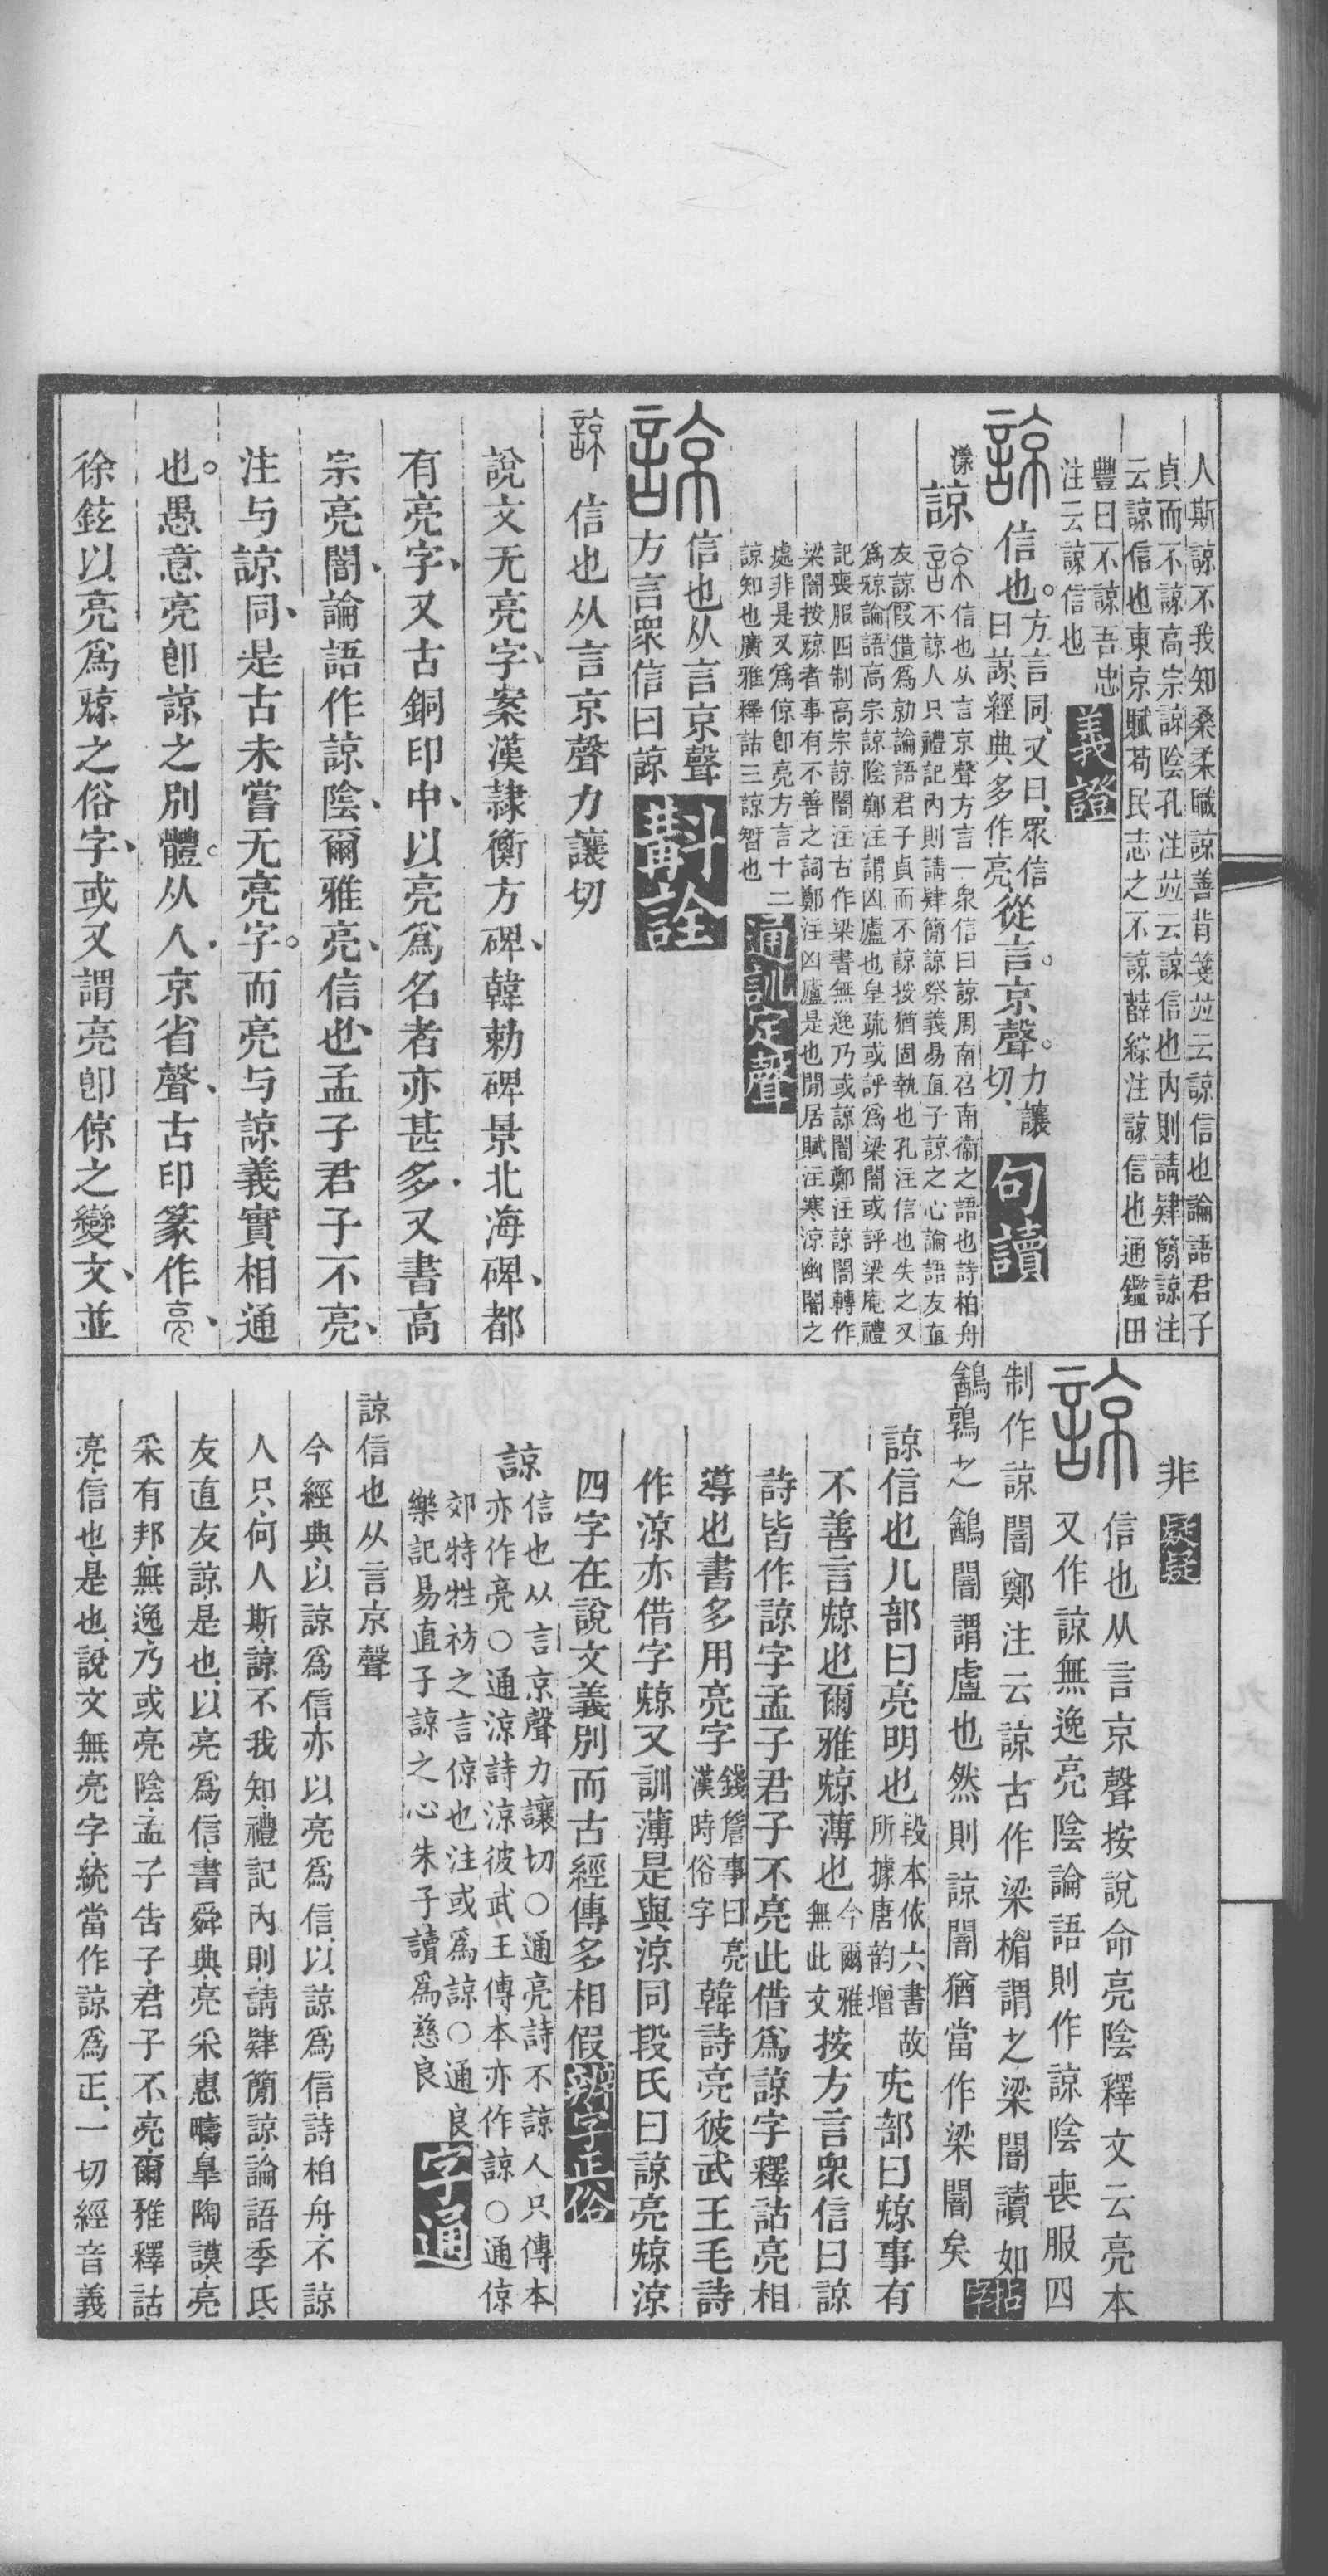 人斯諒不我知桑柔職諒善背箋並云諒信也論語君子
貞而不諒高宗諒陰孔注並云諒信也內則請肄簡諒注
云諒信也東京賦苟民志之不諒薛綜注諒信也通鑑田
豐曰不諒吾忠
注云諒信也
義證
諒
信也。
方言同、又曰、眾信
曰諒、經典多作亮、
從言。京聲。
力讓
切、
句讀
漾
諒
信也从言京聲方言一眾信曰諒周南召南衞之語也詩柏舟
不諒人只禮記內則請肄簡諒祭義易直子諒之心論語友直
友諒假借爲勍論語君子貞而不諒按猶固執也孔注信也失之又
爲䣼論語高宗諒陰鄭注謂凶廬也皇疏或評爲梁闇或評梁庵禮
記喪服四制高宗諒闇注古作梁書無逸乃或諒闇鄭注諒闇轉作
梁闇按䣼者事有不善之詞鄭注凶廬是也閒居賦注寒涼幽闇之
處非是又爲倞卽亮方言十二
諒知也廣雅釋詁三諒智也
通訓定聲
諒
信也从言京聲
方言眾信曰諒
斠詮
諒 信也从言京聲力讓切
說文无亮字、案漢隷衡方碑、韓勅碑景北海碑、都
有亮字、又古銅印中、以亮爲名者亦甚多、又書高
宗亮闇、論語作諒陰、爾雅亮、信也、孟子君子不亮、
注与諒同、是古未嘗无亮字。而亮与諒義實相通
也。愚意亮卽諒之別體。从人、京省聲、古印篆作亮、
徐鉉以亮爲䣼之俗字、或又謂亮卽倞之變文、並
非
疑疑
諒
信也从言京聲按說命亮陰釋文云亮本
又作諒無逸亮陰論語則作諒陰喪服四
制作諒闇鄭注云諒古作梁楣謂之梁闇讀如
鶉鷂之鷂闇謂廬也然則諒闇猶當作梁闇矣
拈字
諒信也儿部曰亮明也
段本依六書故
所據唐韵增
旡部曰䣼事有
不善言䣼也爾雅䣼薄也
今爾雅
無此文
按方言眾信曰諒
詩皆作諒字孟子君子不亮此借爲諒字釋詁亮相
導也書多用亮字
錢詹事曰亮
漢時俗字
韓詩亮彼武王毛詩
作涼亦借字䣼又訓薄是與涼同段氏曰諒亮䣼涼
四字在說文義別而古經傳多相假
辨字正俗
諒
信也从言京聲力讓切○通亮詩不諒人只傳本
亦作亮○通涼詩涼彼武王傳本亦作諒○通倞
郊特牲祊之言倞也注或爲諒○通良
樂記易直子諒之心朱子讀爲慈良
字通
諒信也从言京聲
今經典、以諒爲信、亦以亮爲信、以諒爲信、詩柏舟、不諒
人只、何人斯、諒不我知、禮記內則、請肄簡諒、論語季氏、
友直友諒、是也、以亮爲信、書舜典、亮采惠疇、皐陶謨、亮
采有邦、無逸、乃或亮陰、孟子告子、君子不亮、爾雅釋詁、
亮、信也、是也、說文無亮字、統當作諒爲正、一切經音義